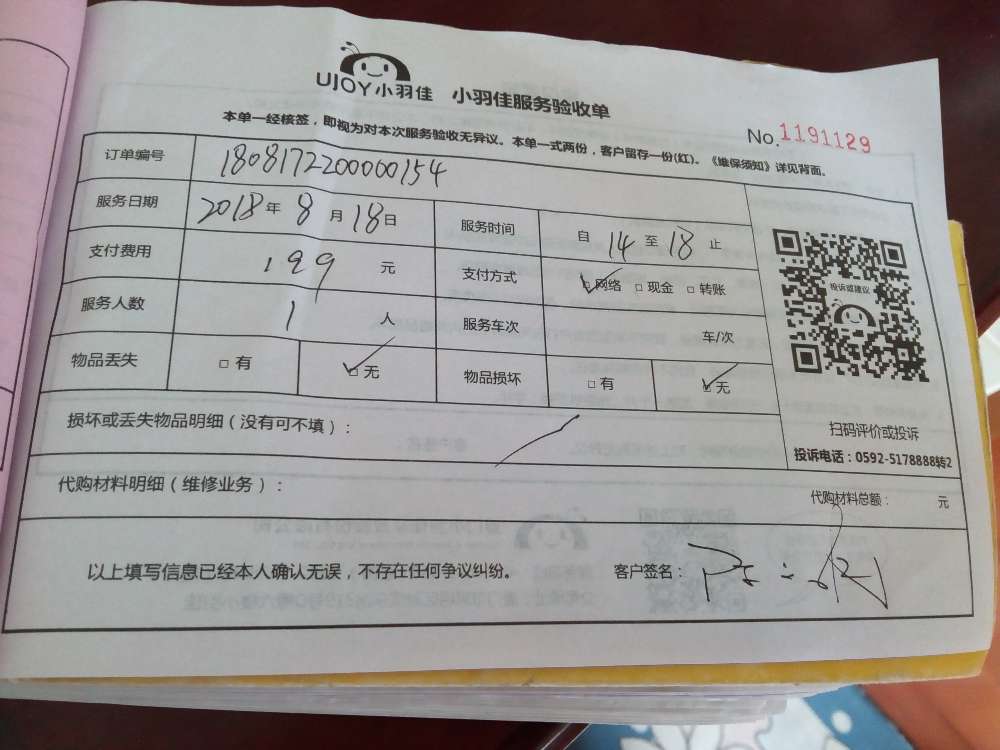 UJOY小羽佳 小羽佳服务验收单
本单一经核签，即视为对本次服务验收无异议。本单一式两份，客户留存一份(红)。《维保须知》详见背面。
No.1191129
订单编号 1808172200000154
服务日期 2018年8月18日 服务时间 自14至18止
支付费用 199元 支付方式 ☑网络 □现金 □转账
服务人数 1人 服务车次 车/次
物品丢失 □有 ☑无 物品损坏 □有 ☑无
投诉或建议
扫码评价或投诉
投诉电话：0592-5178888转2
损坏或丢失物品明细（没有可不填）： /
代购材料明细（维修业务）： 代购材料总额： 元
以上填写信息已经本人确认无误，不存在任何争议纠纷。 客户签名：